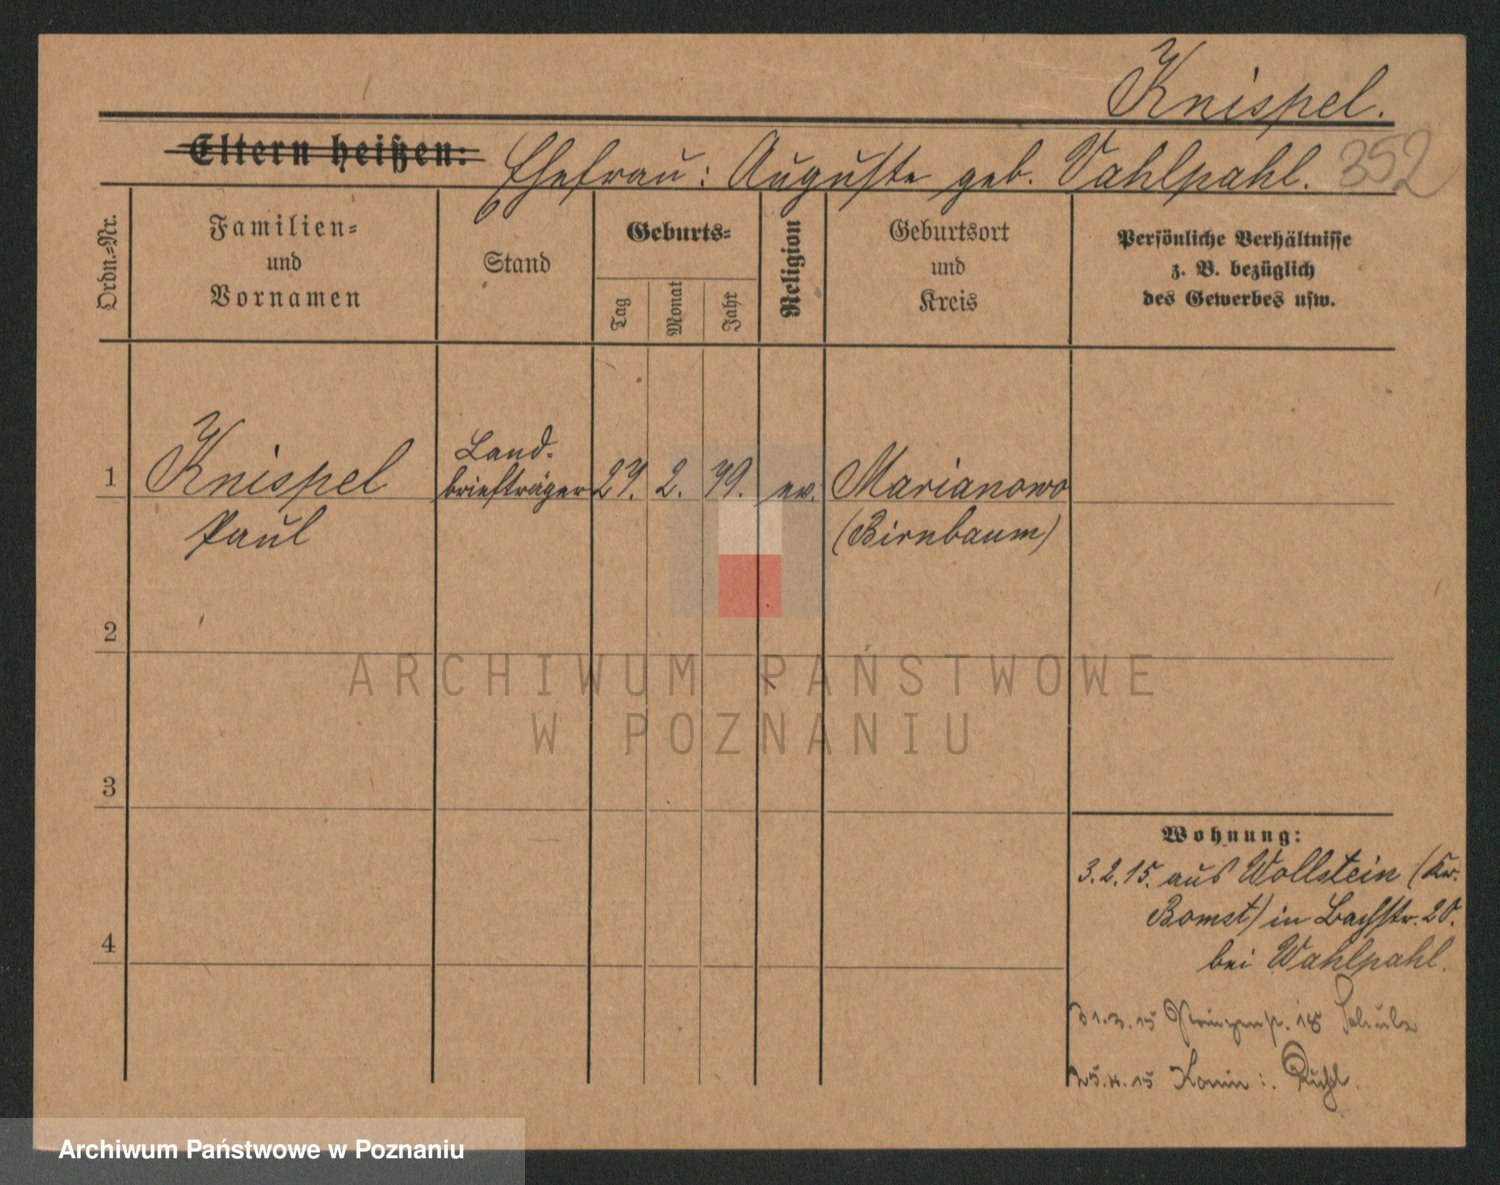 Knispel.
352
Eltern heißen: Ehefrau: Auguste geb. Vahlpahl.
Ordn.-Nr.
Familien-
und
Vornamen
Stand
Geburts-
Tag
Monat
Jahr
Religion
Geburtsort
und
Kreis
Persönliche Verhältnisse
z. B. bezüglich
des Gewerbes usw.
1
Knispel
Paul
Land-
briefträger
27. 2. 79. ev.
Marianowo
(Birnbaum)
2
3
4
Wohnung:
3.2.15. aus Wollstein (Kr.
Bomst) in Bachstr. 20.
bei Wahlpahl.
31.3.15 18 Schulz
25.4.15 Konin :. Ruhl.
ARCHIWUM PAŃSTWOWE
W POZNANIU
Archiwum Państwowe w Poznaniu